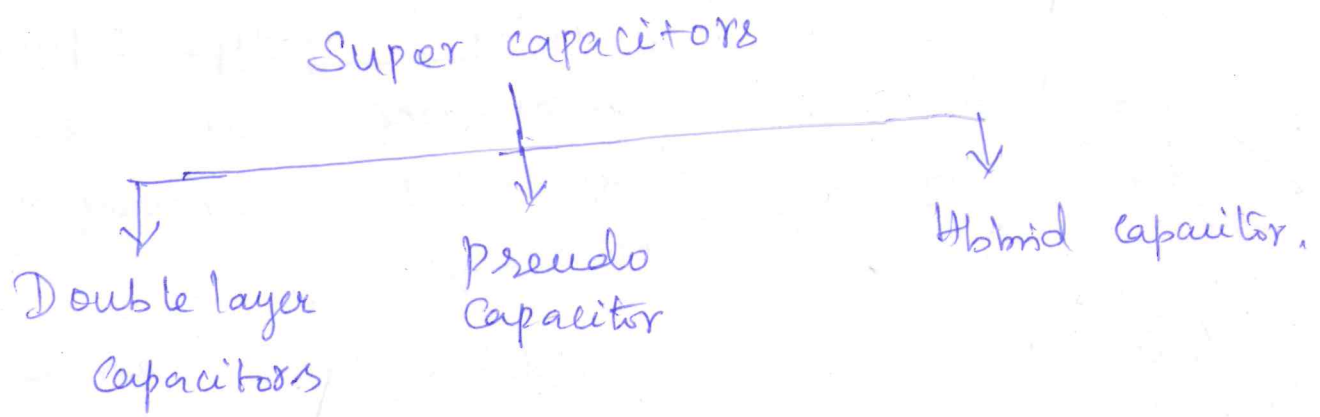 Super capacitors
Double layer
Capacitors
Pseudo
Capacitor
Hybrid Capacitor.